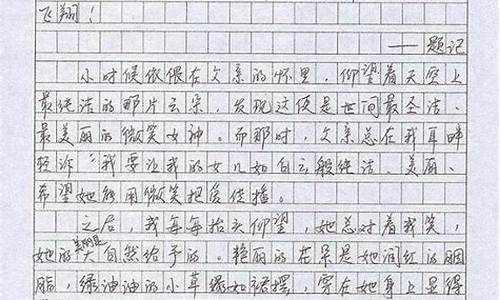 飞翔！
——题记
小时候依偎在父亲的怀里，仰望着天空上
最纯洁的那片云朵，发现这便是世间最圣洁、
最美丽的微笑女神。而那时，父亲总在我耳畔
轻诉“我要让我的女儿如白云般纯洁、美丽、
希望她能用微笑把爱传播。
之后，我每每抬头仰望，她总对着我笑，
她的美丽是大自然给予的。艳丽的花朵是她润红的胭
脂，绿油油的小草缘如裙摆，穿在她身上显得